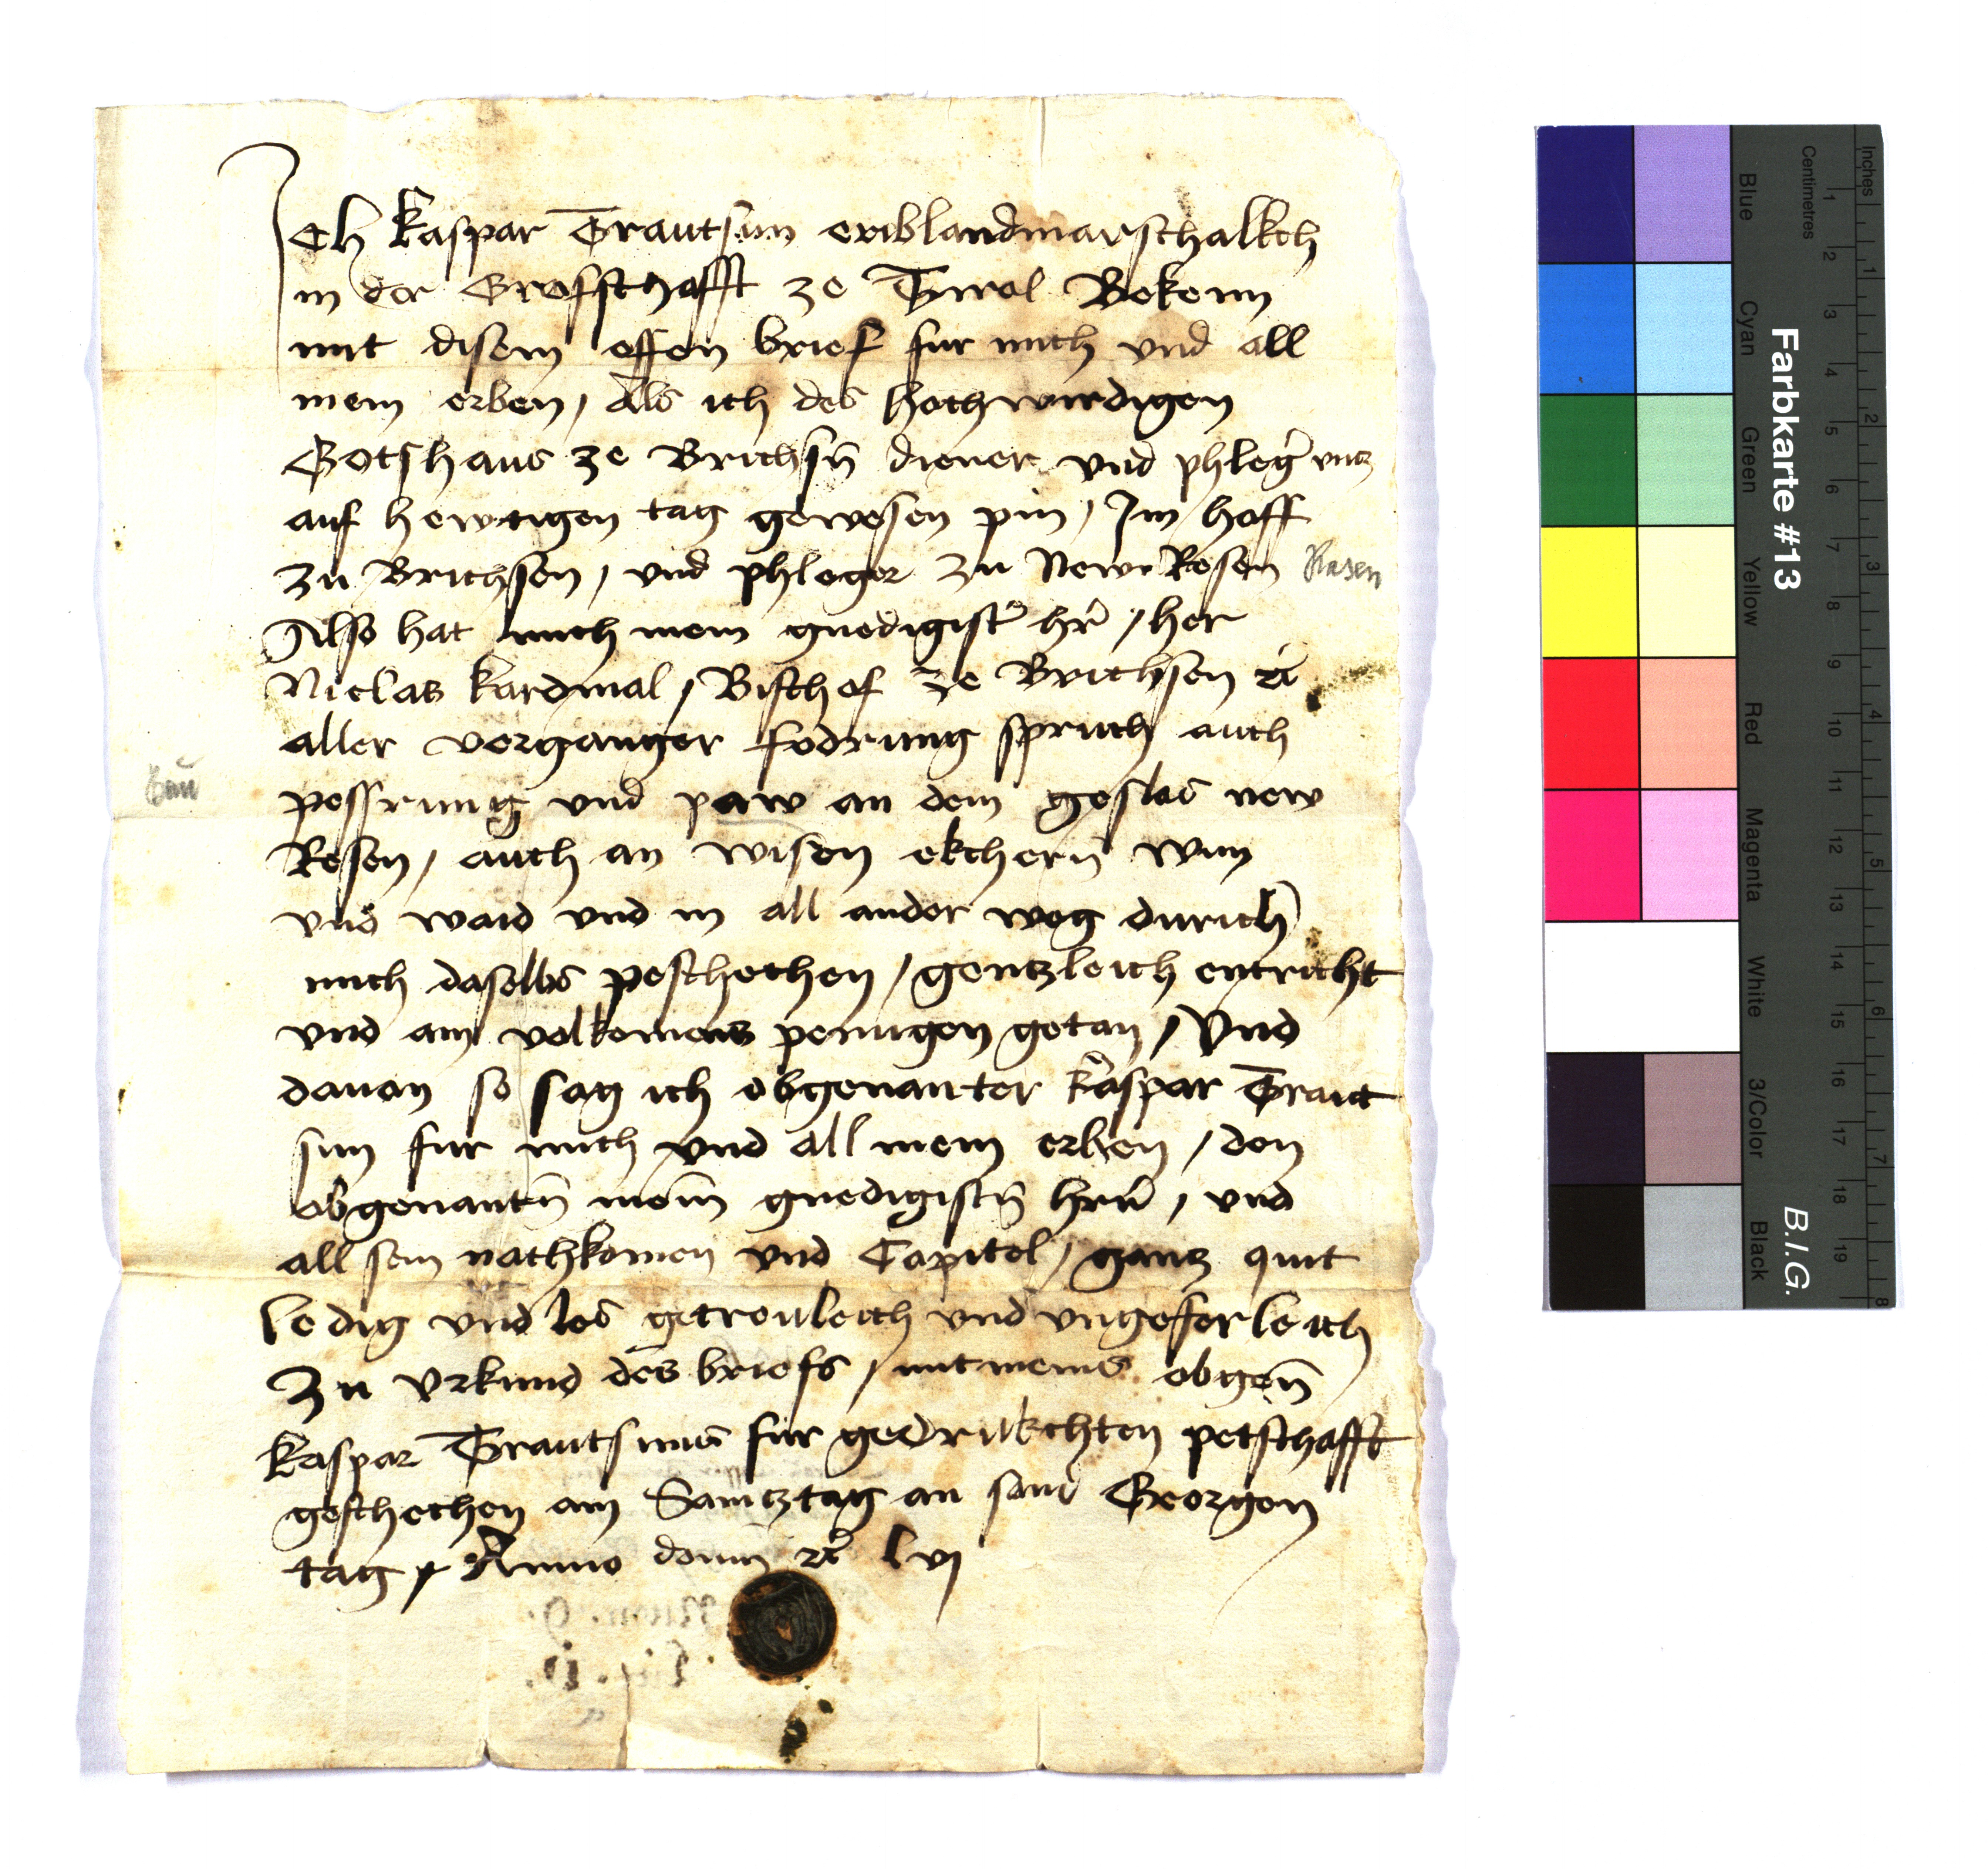 Ich Kaspar Trautsun eriblandmarschalkch
in der Grofschafft ze Tirol Bekenn
mit disem offen brief fur mich vnd all
mein erben, Als ich des hochwirdigen
Gotshaus ze Brichsn̄ diener vnd phleg̾ vntz
auf hewtigen tag gewesen pin, Im hoff
zu Brichsen, vnd phleger zu New Resen
Rasen
Also hat mich mein gnedigist̾ hr̄, her
Niclas kardinal, Bischof ze Brichsen
aller vorganger fodrung spruch auch
Bau
pessrung vnd paw an dem geslos new
Resen, auch an wisen ekchern wun
vnd waid vnd in all ander weg durich
mich daselbs peschechen, gentzleich entricht
vnd ain volkomens penugen getan, Vnd
dauon so sag ich obgenanter kaspar Traut
sun fur mich vnd all mein erben, den
obgenantn̄ mein̄ gnedigistn̄ hrn̄, vnd
all sein nachkomen vnd Capitel, gantz quit
ledig vnd los getreuleich vnd vngeferleich
Zu Vrkund des briefs, mit meins obgen̄
Kaspar Trautsuns fur gedrukchten petschafft
geschechen am Samtztag an sand Georgen
tag, Anno domī lvj
Farbkarte #13
B.I.G.
Centimetres
Inches
1 2 3 4 5 6 7 8 9 10 11 12 13 14 15 16 17 18 19
1 2 3 4 5 6 7 8
Blue Cyan Green Yellow Red Magenta White 3/Color Black